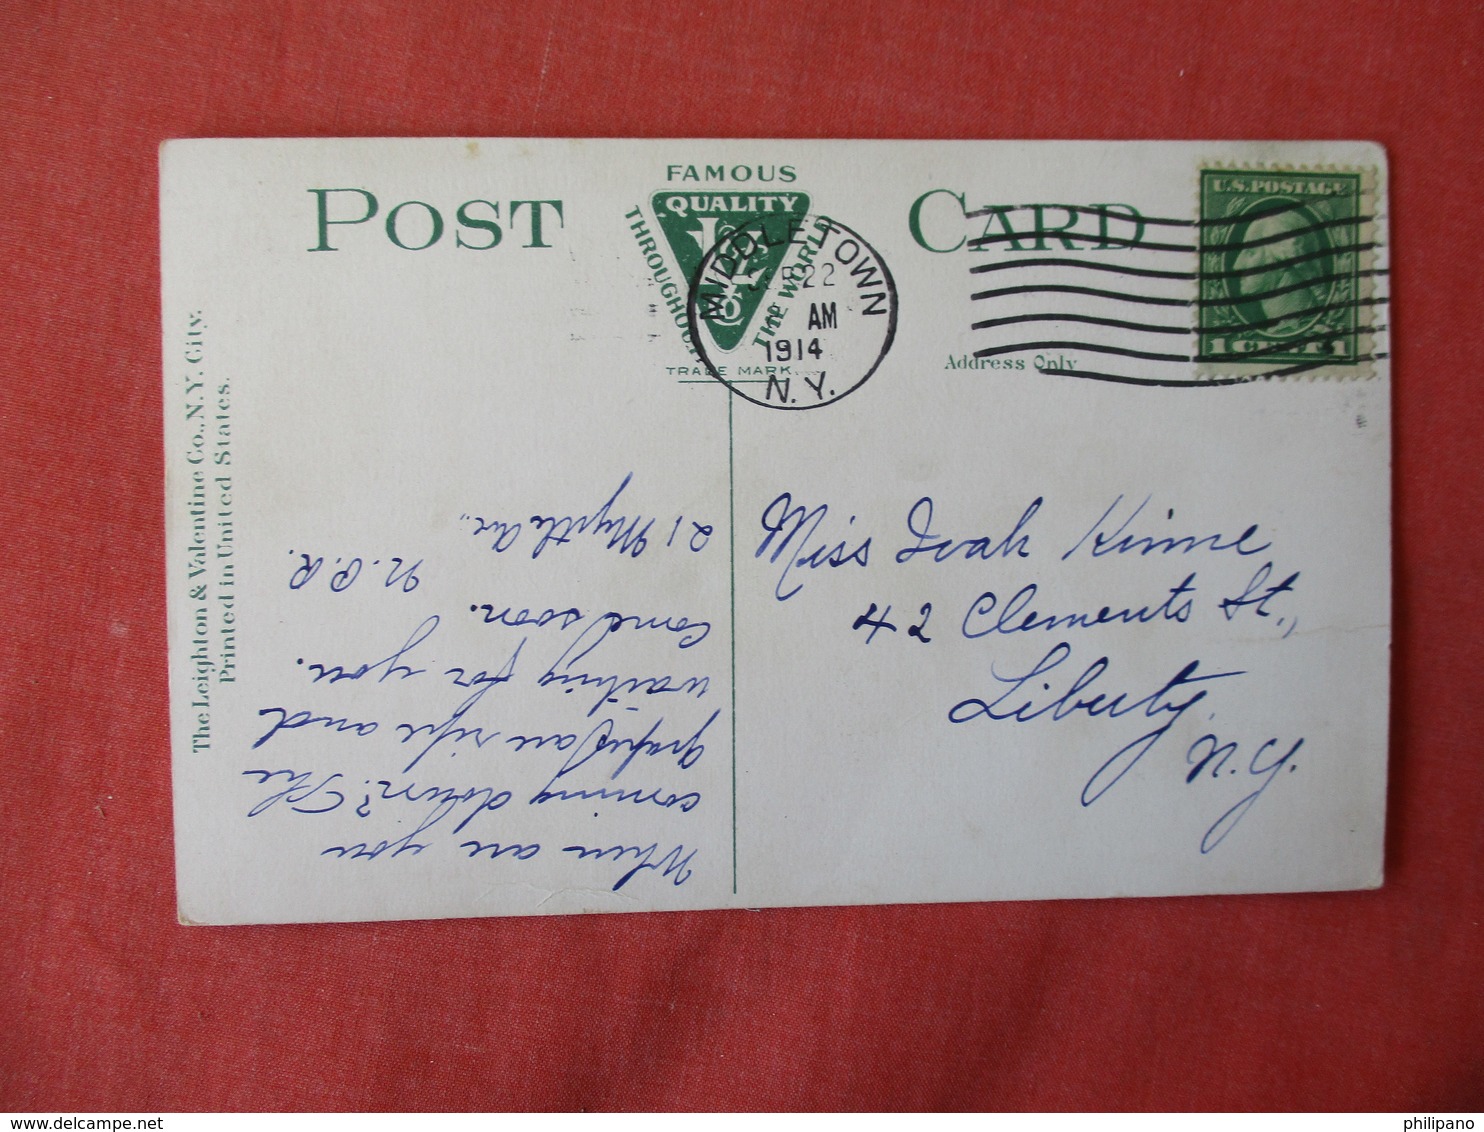 POST CARD
FAMOUS
QUALITY
THROUGHOUT
THE WORLD
TRADE MARK.
MIDDLETOWN
SEP 22
AM
1914
N.Y.
U.S. POSTAGE
1 CENT 1
Address Only
The Leighton & Valentine Co., N.Y. City.
Printed in United States.
When are you
coming down? The
grapes are ripe and
waiting for you.
Come soon.
N. P. R.
21 Myrtle Av.,
Miss Ivah Kinne
42 Clements St.,
Liberty,
N.Y.
philipano